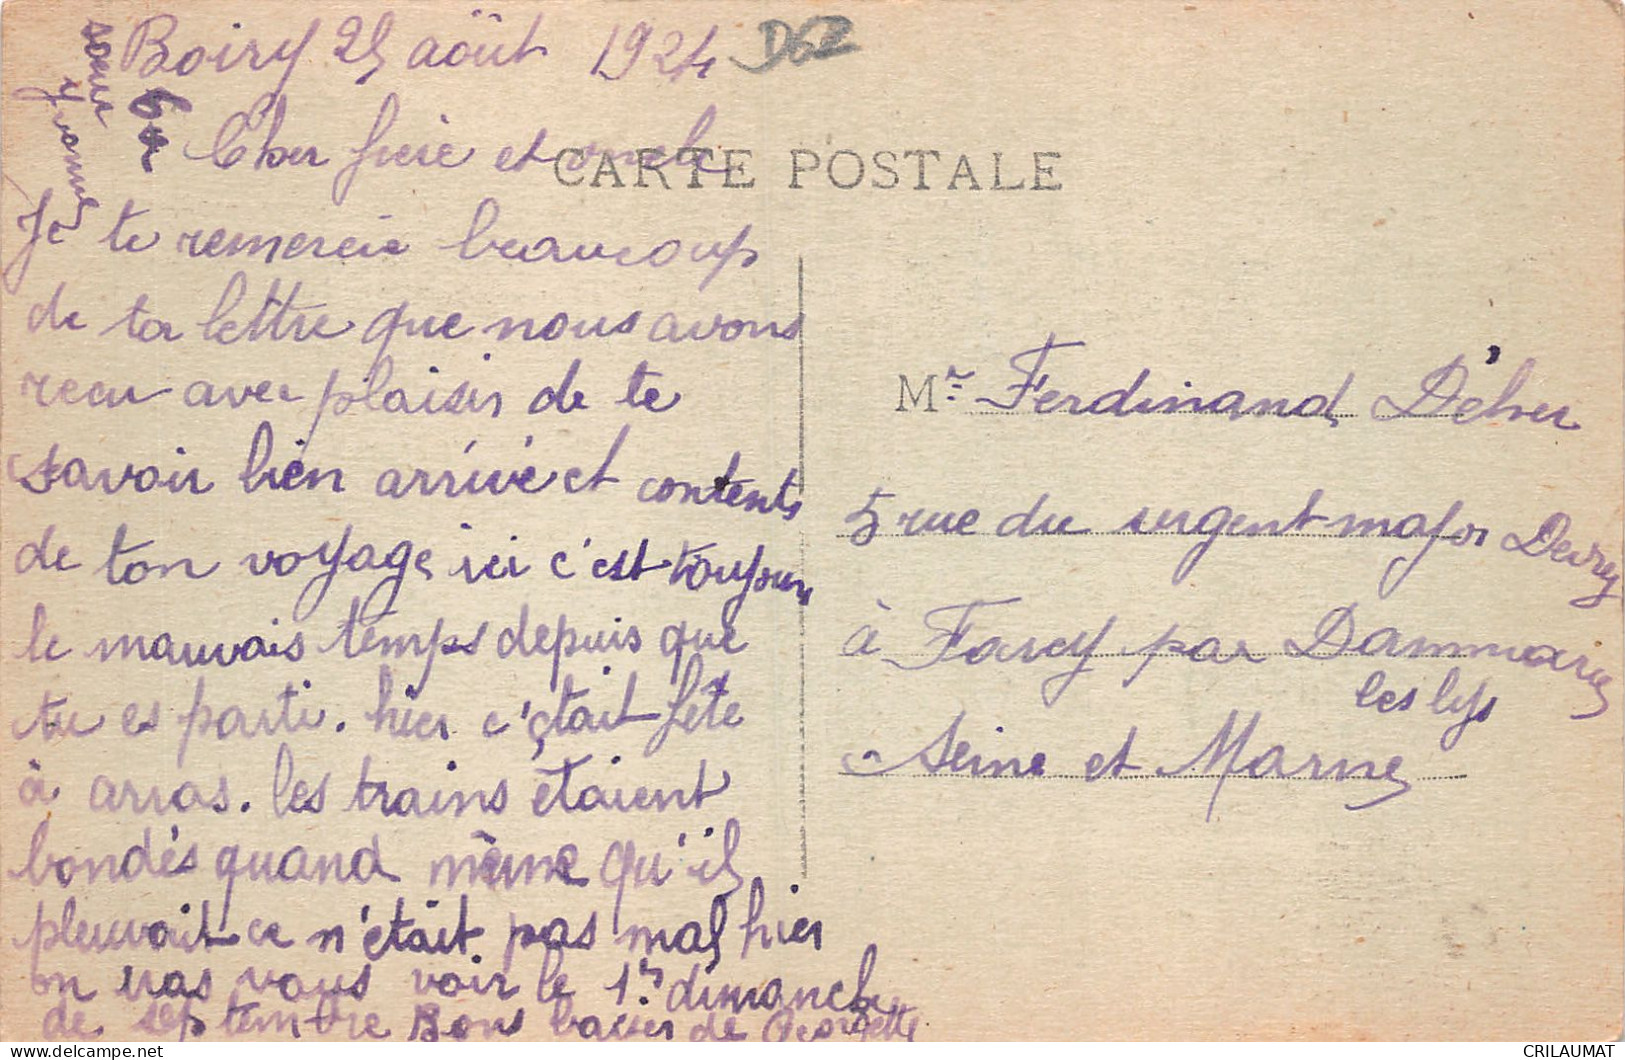 Boiry 25 août 1924
D62
Cher frère et oncle
CARTE POSTALE
Je te remercie beaucoup
de ta lettre que nous avons
recu avec plaisir de te
savoir bien arrivé et contents
de ton voyage ici c'est toujours
le mauvais temps depuis que
tu es parti. hier c'était fête
à arras. les trains étaient
bondés quand même qu'il
pleuvait ce n'était pas mal hier
on iras vous voir le 1er dimanche
de septembre Bons baiser de Georgette
soeur
Yvonne
Mr. Ferdinand Déher
5 rue du sergent major Devry
à Farcy par Dammarie
les lys
Seine et Marne
CRILAUMAT